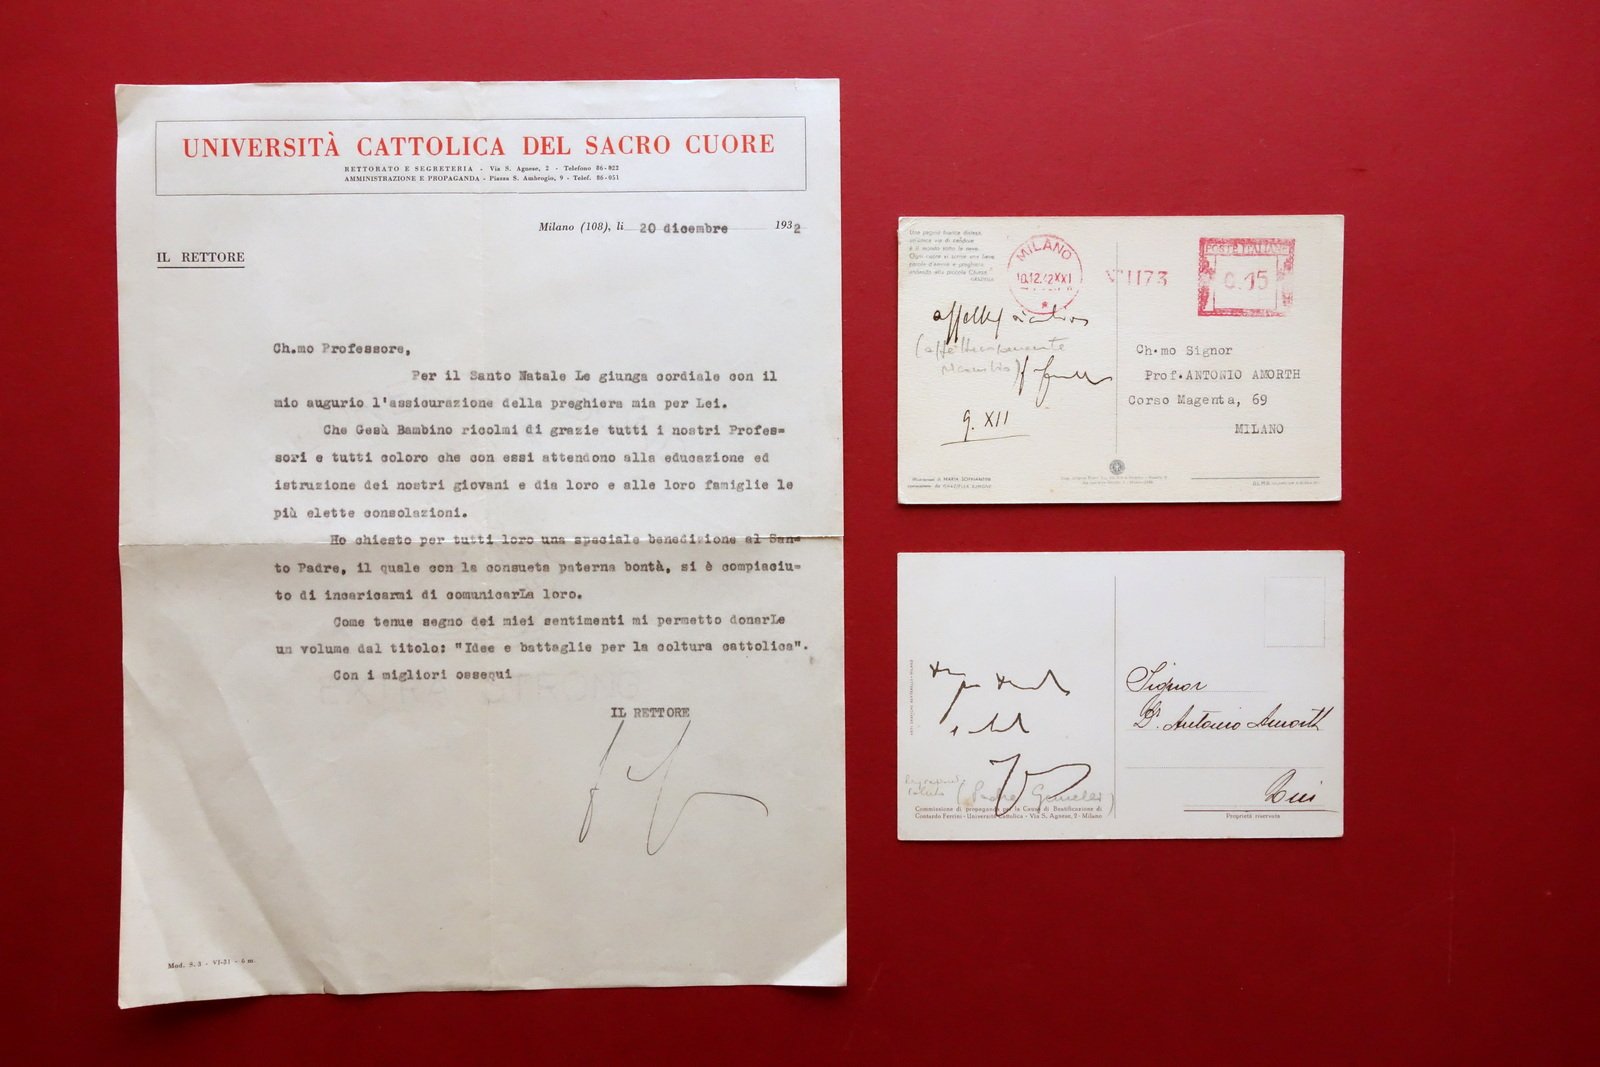 UNIVERSITÀ CATTOLICA DEL SACRO CUORE
RETTORATO E SEGRETERIA - Via S. Agnese, 2 - Telefono 86-022
AMMINISTRAZIONE E PROPAGANDA - Piazza S. Ambrogio, 9 - Telef. 86-051
Milano (108), li 20 dicembre 1932
IL RETTORE
Ch.mo Professore,
Per il Santo Natale Le giunga cordiale con il
mio augurio l'assicurazione della preghiera mia per Lei.
Che Gesù Bambino ricolmi di grazie tutti i nostri Profes=
sori e tutti coloro che con essi attendono alla educazione ed
istruzione dei nostri giovani e dia loro e alle loro famiglie le
più elette consolazioni.
Ho chiesto per tutti loro una speciale benedizione al San=
to Padre, il quale con la consueta paterna bontà, si è compiaciu=
to di incaricarmi di comunicarLa loro.
Come tenue segno dei miei sentimenti mi permetto donarLe
un volume dal titolo: "Idee e battaglie per la coltura cattolica".
Con i migliori ossequi
IL RETTORE
Mod. S. 3 - VI-31 - 6 m.
Una pagina bianca distesa,
un'unica via di candore
è il mondo sotto la neve.
Ogni cuore vi scrive una lieve
parola d'amore e preghiera
andando alla piccola Chiesa.
GRAZIELLA
MILANO
10.12.42 XXI
1173
POSTE ITALIANE
0.15
(affettuosamente
ricambio)
9. XII
Ch.mo Signor
Prof. ANTONIO AMORTH
Corso Magenta, 69
MILANO
Illustrazioni di MARIA SOFFIANTINI
Signor
Dr. Antonio Amorth
Qui
Proprietà riservata
ringraziando
saluta (Padre Gemelli)
Commissione di propaganda per la Causa di Beatificazione di
Contardo Ferrini - Università Cattolica - Via S. Agnese, 2 - Milano